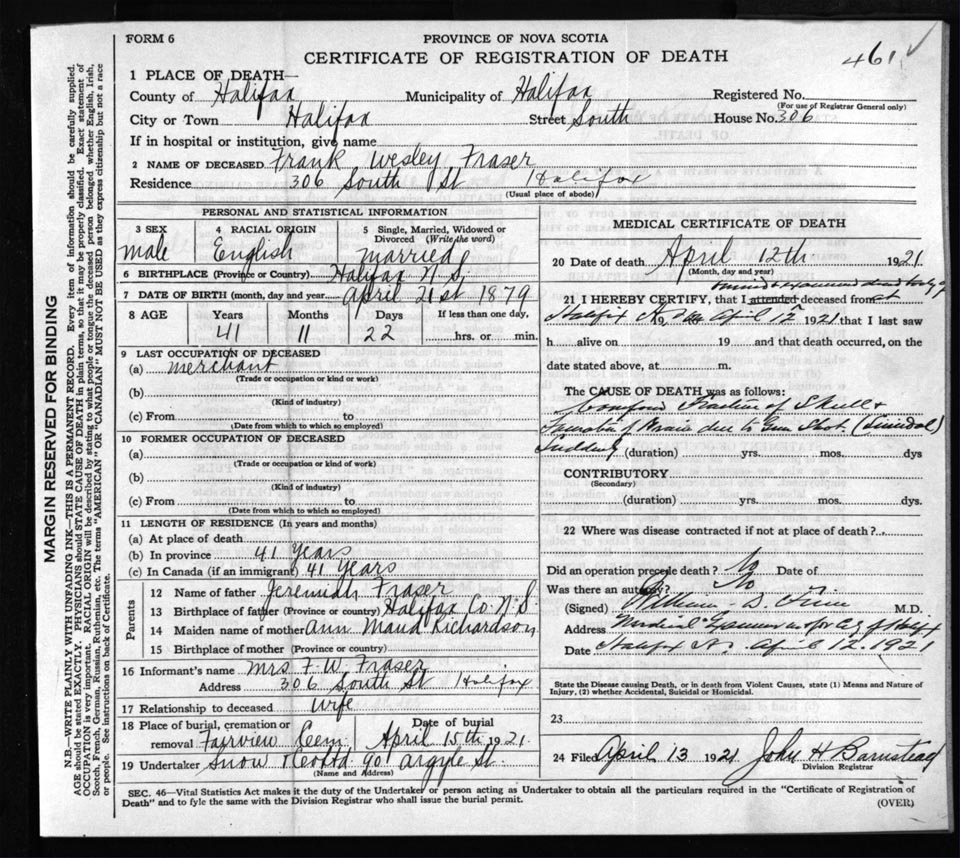 FORM 6
PROVINCE OF NOVA SCOTIA
CERTIFICATE OF REGISTRATION OF DEATH
461 ✓
1 PLACE OF DEATH—
County of Halifax Municipality of Halifax Registered No.
(For use of Registrar General only)
City or Town Halifax Street South House No. 306
If in hospital or institution, give name
2 NAME OF DECEASED Frank Wesley Fraser
Residence 306 South St Halifax
(Usual place of abode)
PERSONAL AND STATISTICAL INFORMATION
3 SEX male
4 RACIAL ORIGIN English
5 Single, Married, Widowed or Divorced (Write the word) married
6 BIRTHPLACE (Province or Country) Halifax N.S.
7 DATE OF BIRTH (month, day and year) April 21st 1879
8 AGE Years Months Days If less than one day,
41 11 22 hrs. or min.
9 LAST OCCUPATION OF DECEASED
(a) merchant
(Trade or occupation or kind or work)
(b)
(Kind of industry)
(c) From to
(Date from which to which so employed)
10 FORMER OCCUPATION OF DECEASED
(a)
(Trade or occupation or kind or work)
(b)
(Kind of industry)
(c) From to
(Date from which to which so employed)
11 LENGTH OF RESIDENCE (In years and months)
(a) At place of death
(b) In province 41 Years
(c) In Canada (if an immigrant) 41 Years
Parents
12 Name of father Jeremiah Fraser
13 Birthplace of father (Province or country) Halifax Co. N.S.
14 Maiden name of mother Ann Maud Richardson
15 Birthplace of mother (Province or country)
16 Informant's name Mrs F. W. Fraser
Address 306 South St Halifax
17 Relationship to deceased wife
18 Place of burial, cremation or removal Fairview Cem. Date of burial April 15th 1921.
19 Undertaker Snow & Co Ltd. 90 Argyle St.
(Name and Address)
MEDICAL CERTIFICATE OF DEATH
20 Date of death April 12th 1921
(Month, day and year)
examined dead body of
21 I HEREBY CERTIFY, that I attended deceased from at
Halifax April 12 1921 that I last saw
h alive on 19 and that death occurred, on the
date stated above, at m.
The CAUSE OF DEATH was as follows:
Compound Fracture of Skull &
Brain due to Gun Shot. (Suicidal)
Suddenly (duration) yrs. mos. dys
CONTRIBUTORY
(Secondary)
(duration) yrs. mos. dys.
22 Where was disease contracted if not at place of death?
Did an operation precede death? No Date of
Was there an autopsy? No
(Signed) William D. M.D.
Address Medical Examiner for City of Halifax
Date Halifax April 12. 1921
State the Disease causing Death, or in death from Violent Causes, state (1) Means and Nature of
Injury, (2) whether Accidental, Suicidal or Homicidal.
23
24 Filed April 13 1921 John H Barnstead
Division Registrar
SEC. 46—Vital Statistics Act makes it the duty of the Undertaker or person acting as Undertaker to obtain all the particulars required in the "Certificate of Registration of
Death" and to fyle the same with the Division Registrar who shall issue the burial permit.
(OVER)
MARGIN RESERVED FOR BINDING
N.B.—WRITE PLAINLY WITH UNFADING INK—THIS IS A PERMANENT RECORD. Every item of information should be carefully supplied.
AGE should be stated EXACTLY. PHYSICIANS should STATE CAUSE OF DEATH in plain terms, so that it may be properly classified. Exact statement of
OCCUPATION is very important. RACIAL ORIGIN will be described by stating to what people or tongue the deceased person belonged whether English, Irish,
Scotch, French, German, Russian, Ruthenian, etc. The terms "AMERICAN" OR "CANADIAN" MUST NOT BE USED as they express citizenship but not a race
or people. See instructions on back of Certificate.